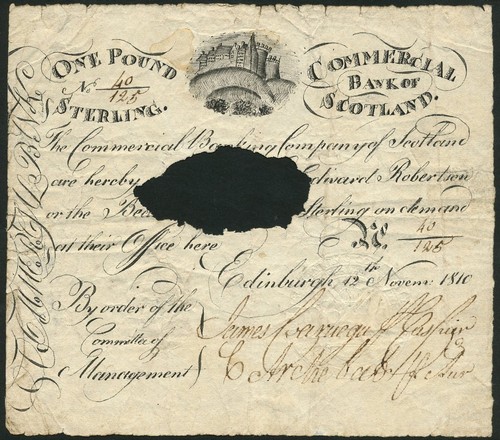 ONE POUND
No 40/125
STERLING.
COMMERCIAL
BANK OF
SCOTLAND.
The Commercial Banking Company of Scotland
are hereby Edward Robertson
or the Bea Sterling on demand
at their Office here No. 40/125
Edinburgh 12th Novem: 1810
By order of the
Committee of
Management
James